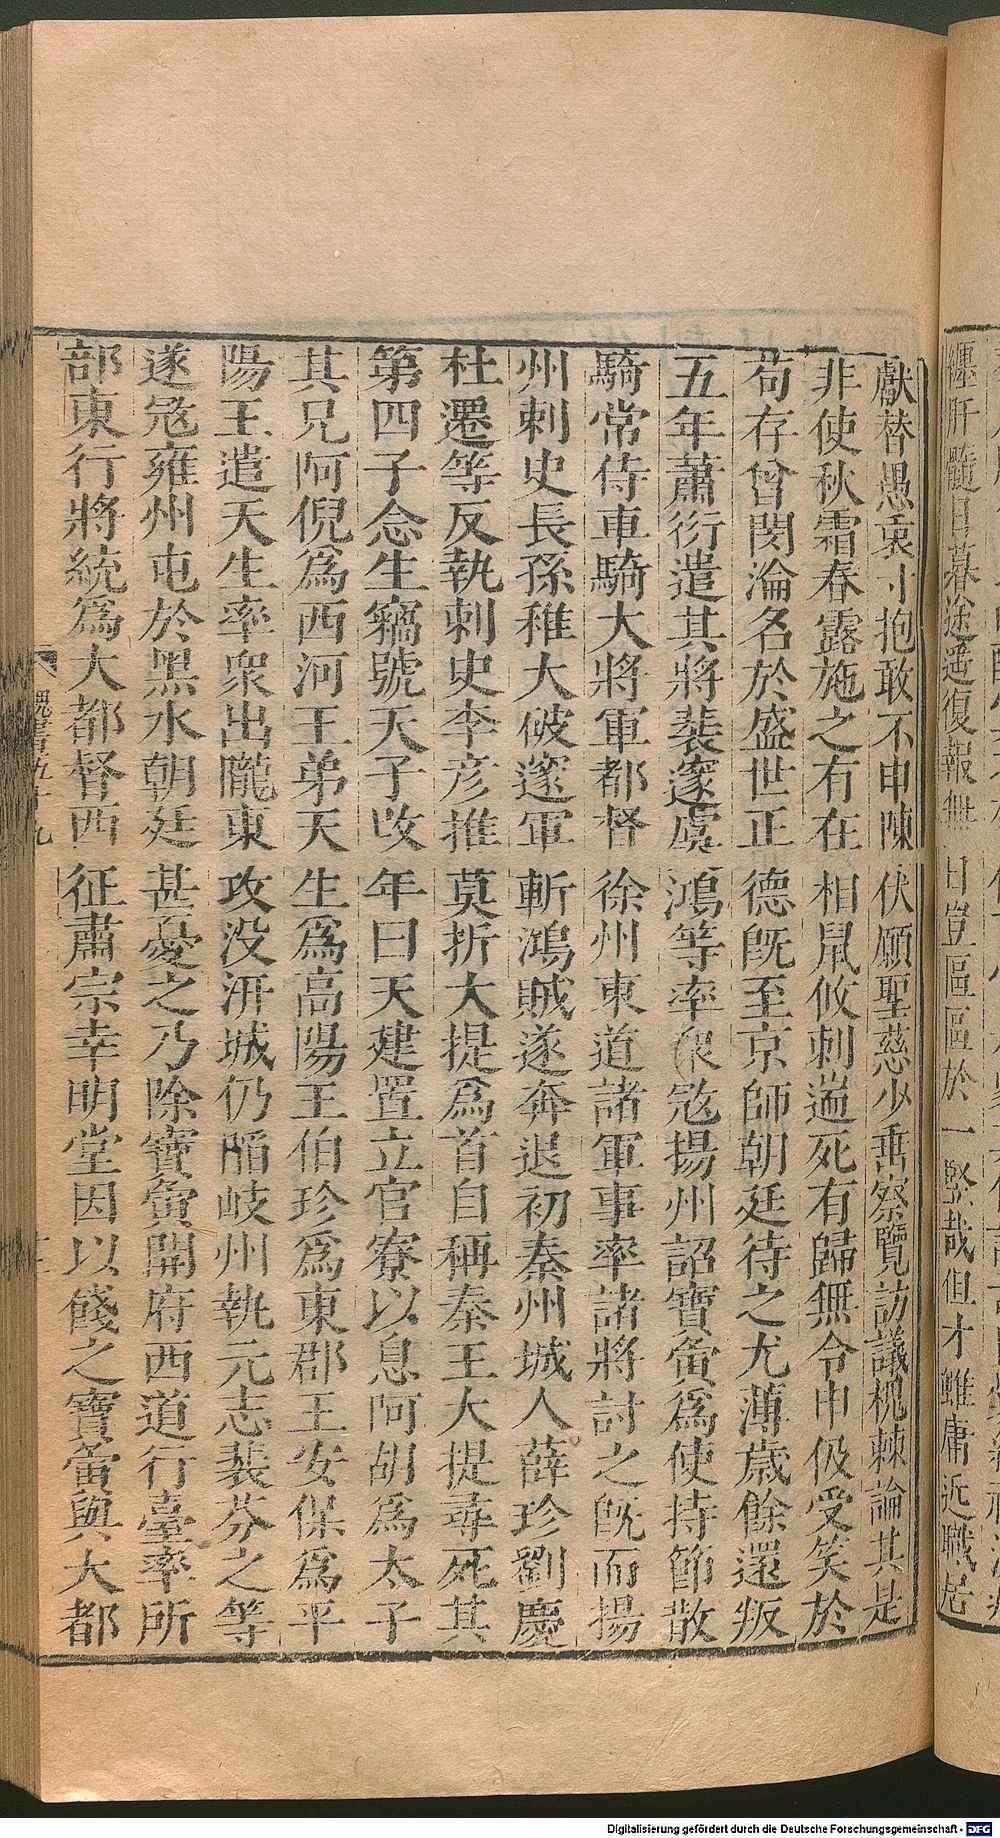 纏肝髓日暮途遥復報無日豈區區於一豎哉但才雖庸近職居
獻替愚衷寸抱敢不申陳伏願聖慈少垂察覽訪議槐棘論其是
非使秋霜春露施之有在相鼠攸刺遄死有歸無令申伋受笑於
苟存曾閔淪名於盛世正德既至京師朝廷待之尤薄歲餘還叛
五年蕭衍遣其將裴邃虞鴻等率衆宼揚州詔寶夤爲使持節散
騎常侍車騎大將軍都督徐州東道諸軍事率諸將討之既而揚
州刺史長孫稚大破邃軍斬鴻賊遂奔退初秦州城人薛珍劉慶
杜遷等反執刺史李彦推莫折大提爲首自稱秦王大提尋死其
第四子念生竊號天子收年曰天建置立官寮以息阿胡爲太子
其兄阿倪爲西河王弟天生爲高陽王伯珍爲東郡王安保爲平
陽王遣天生率衆出隴東攻没汧城仍陷岐州執元志裴芬之等
遂宼雍州屯於黑水朝廷甚憂之乃除寶夤開府西道行臺率所
部東行將統爲大都督西征肅宗幸明堂因以餞之寶夤與大都
魏書五十九
Digitalisierung gefördert durch die Deutsche Forschungsgemeinschaft - DFG